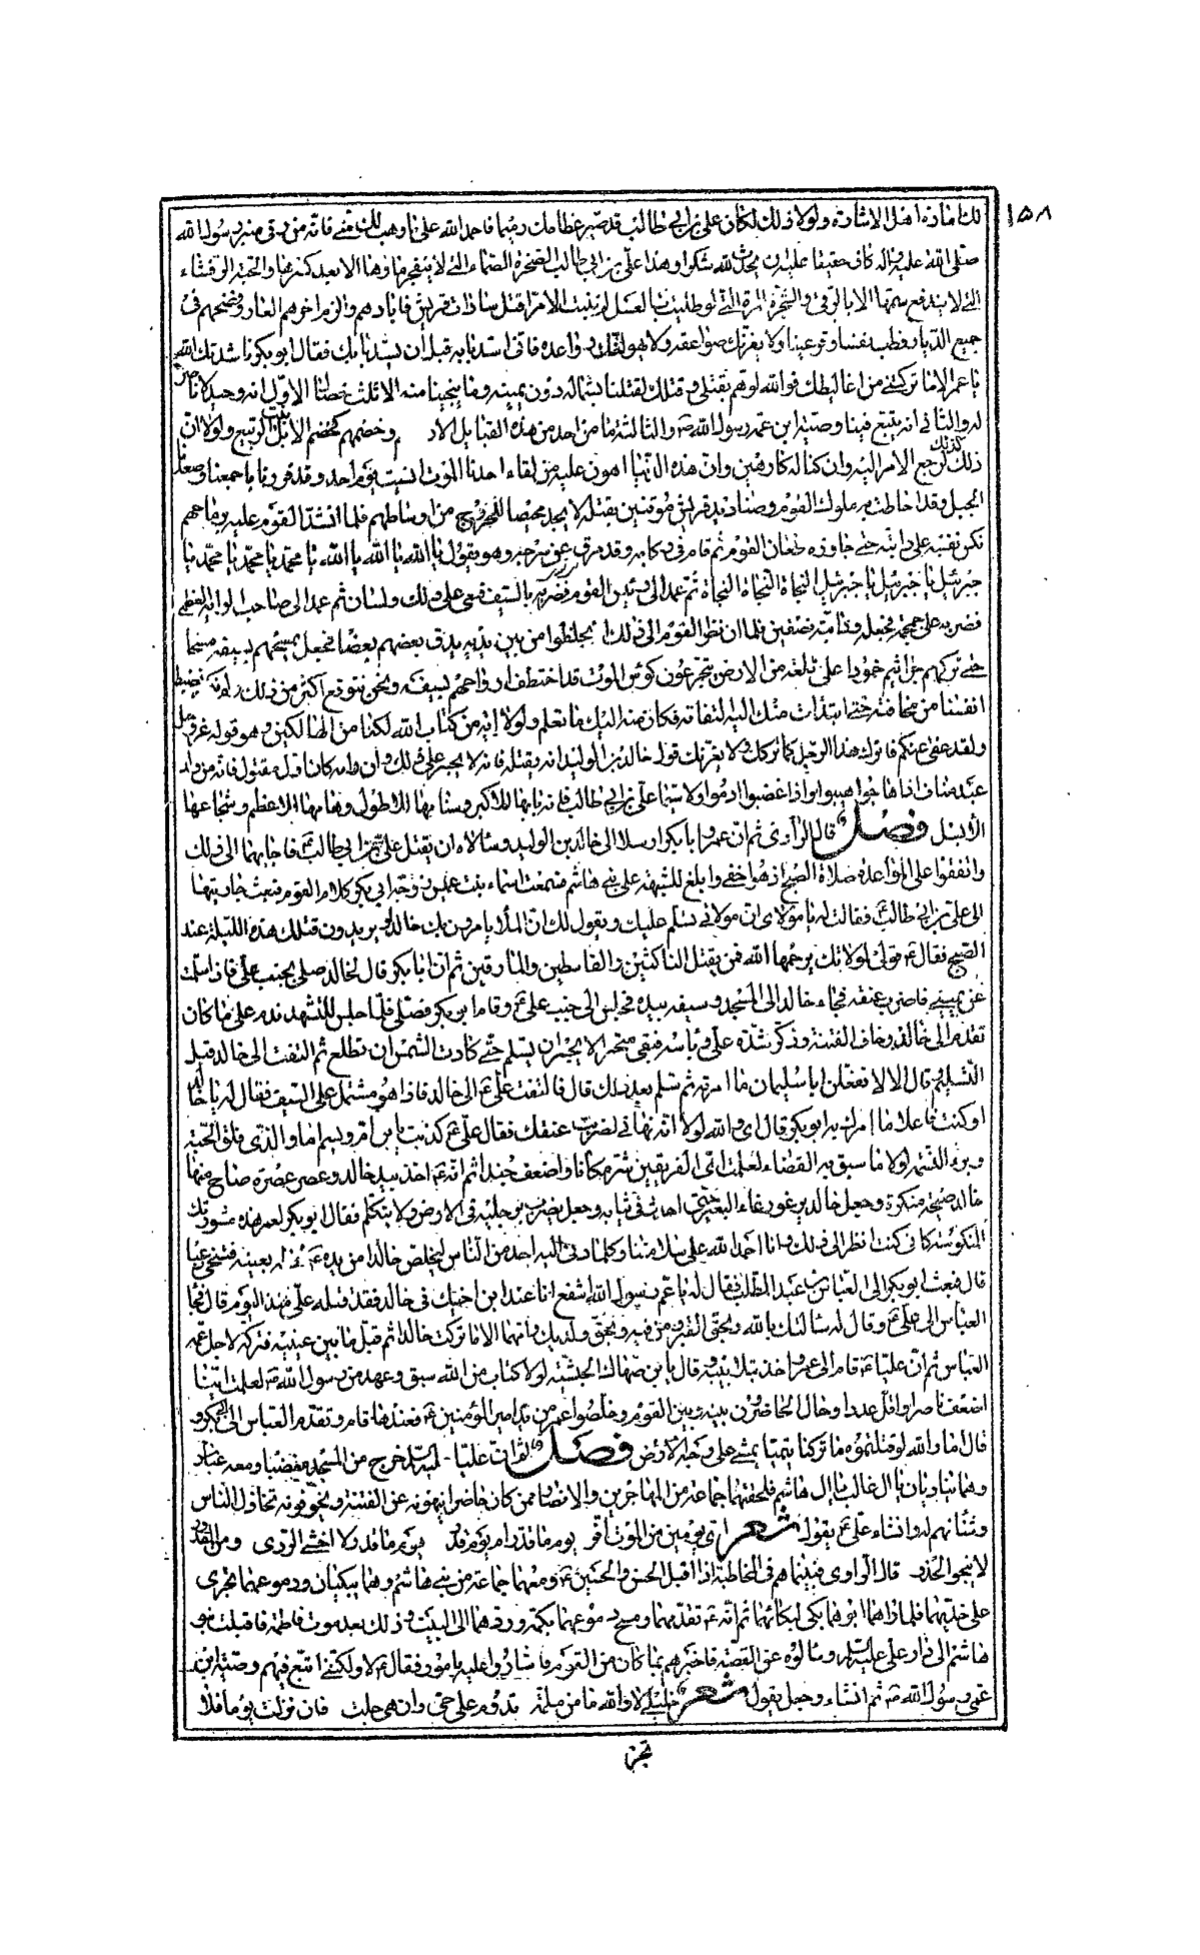 ١٥٨
لك ماذا اهل الاشارة ولولا ذلك لكان علي بن ابي طالب قد صير عظامك رميما فاحمد الله على ما وهب لك مني فانه من رقى منبر رسول الله
صلى الله عليه واله كان حقيقا عليه ان يحدث لله شكرا وهذا علي بن ابي طالب الصخرة الصماء التي لا ينفجر ماؤها الا بعد كسرها والحية الرقشاء
التي لا يندفع سمها الا بالرقى والشجرة المرة التي لو طليت بالعسل لم تنبت الا مرا قتل سادات قريش فابادهم والزم اخرهم العار وفضحهم في
جميع الدنيا وفطب نفسا وقر عينا ولا يغرنك صواعقه ولا يهولنك رواعده فاني اسد بابه قبل ان يسد بابك فقال ابو بكر ناشدتك الله
يا عمر الا ما تركتني من اغاليطك فوالله لو هم بقتلي وقتلك لقتلنا بشماله دون يمينه وما ينجينا منه الا ثلث خصال الاول انه وحيد لا ناصر
له والثاني انه يتبع فينا وصية ابن عمه رسول الله ص والثالثة ما من احد من هذه القبايل الا و وخضمهم كخضم الابل نبت الربيع ولولا ان
ذلك كذلك لرجع الامر اليه وان كنا له كارهين وان هذه الدنيا اهون عليه من لقاء احدنا الموت انسيت يوم احد وقد فررنا باجمعنا وصعدنا
الجبل وقد احاطت به ملوك القوم وصناديد قريش موقنين بقتله لا يجد محيصا للخروج من اوساطهم فلما انشد القوم عليه رماحهم
نكس نفسه على دابته حتى جاوزه طعان القوم ثم قام في ركابه وقد مرق عن سرجه وهو يقول يا الله يا الله يا الله يا محمد يا محمد يا محمد يا
جبرئيل يا جبرئيل يا جبرئيل النجاة النجاة النجاة ثم عمد الى رئيس القوم فضربه بالسيف فبقى على فك ولسان ثم عمد الى صاحب لوائه العظمى
فضربه على جمجمته ودابته نصفين فلما ان نظر القوم الى ذلك انجلفوا من بين يديه يدق بعضهم بعضا فجعل يمسحهم بسيفه مسحا
حتى تركهم جراثيم خمودا على تلعة من الارض يتجرعون كؤس الموت قد اختطف ارواحهم بسيفه ونحن نتوقع اكثر من ذلك ولم نكن نضبط
انفسنا من مخافته حتى ابتدات منك اليه التفاتة فكان منه اليك ما تعلم ولولا اية من كتاب الله لكنا من الهالكين وهو قوله عز وجل
ولقد عفى عنكم فاترك هذا الرجل كما تركك ولا يغرنك قول خالد بن الوليد انه يقتله فانه لا يجسر على ذلك وان رامه كان اول مقتول فانه من ولد
عبد مناف اذا هاجوا هيبوا واذا غضبوا ادموا ولا سيما علي بن ابي طالب فانه نابها الاكبر وسنامها الاطول وهامها الاعظم وشجاعها
الابسل فصل قال الراوي ثم ان عمر وابا بكر ارسلا الى خالد بن الوليد وسالاه ان يقتل علي بن ابي طالب ع فاجابهما الى ذلك
واتفقوا على المواعدة صلاة الصبح اذ هو اخفى وابلغ للشبهة على بني هاشم فسمعت اسماء بنت عميس زوجة ابي بكر كلام القوم فبعثت جاريتها
الى علي بن ابي طالب ع فقالت له يا مولاي ان مولاتي تسلم عليك وتقول لك ان الملأ يامرون بك خالد يريدون قتلك هذه الليلة عند
الصبح فقال ع قولي لمولاتك يرحمها الله فمن يقتل الناكثين والقاسطين والمارقين ثم ان ابا بكر قال لخالد صلي بجنب علي فاذا سلمت
عن يميني فاضرب عنقه فجاء خالد الى المسجد وسيفه بيده فجلس الى جنب علي ع وقام ابو بكر فصلى فلما جلس للتشهد ندم على ما كان
تقدم الى خالد وخاف الفتنة وذكر شدة علي وباسه فبقي متحيرا لا يجسر ان يسلم حتى كادت الشمس ان تطلع ثم التفت الى خالد قبل
التسليم قال لا لا تفعلن ابا سليمان ما امرتك ثم سلم بعد ذلك قال فالتفت علي ع الى خالد فاذا هو مشتمل على السيف فقال له يا خالد
او كنت فاعلا ما امرك به ابو بكر قال اي والله لولا انه نهاني لضربت عنقك فقال علي ع كذبت يا بن اما والذي فلق الحبة
وبرء النسمة لولا ما سبق به القضاء لعلمت اي الفريقين شر مكانا واضعف جندا ثم انه ع اخذ بيد خالد وعصره عصرة صاح منها
خالد صيحة منكرة وجعل خالد يرغو رغاء البعير حتى احدث في ثيابه وجعل يضرب برجليه في الارض ولا يتكلم فقال ابو بكر لعمر هذه مشورتك
المنكوسة كاني كنت انظر الى ذلك وانا احمد الله على سلامتنا وكلما دنى اليه احد من الناس ليخلص خالدا من يده لمحه بعينه فتنحى عنها
قال فبعث ابو بكر الى العباس بن عبد المطلب فقال له يا عم رسول الله اشفع لنا عند ابن اخيك في خالد فقد قتله علي هذا اليوم قال فجاء
العباس الى علي ع وقال له سالتك بالله وبحق القبر ومن فيه وبحق ولديك وامهما الا ما تركت خالدا ثم قبل ما بين عينيه فتركه لاجل عمه
العباس ثم ان عليا ع قام الى عمر واخذ بتلابيبه وقال يا بن صهاك الحبشية لولا كتاب من الله سبق وعهد من رسول الله ص لعلمت اينا
اضعف ناصرا واقل عددا وحال الحاضرون بينه وبين القوم وخلصوا عمر من يد امير المؤمنين ع فعندها قام وتقدم العباس الى ابي بكر و
قال اما والله لو قتلتموه ما تركنا تيميا يمشي على وجه الارض فصل ثم ان عليا خرج من المسجد مغضبا ومعه عباد
وهما يناديان يال غالب يال هاشم فلحقهما جماعة من المهاجرين والانصار ممن كان حاضرا ينهونه عن الفتنة ويخوفونه تخاذل الناس
وانشاء علي ع يقول شعر اي يومين من الموت افر يوم ما قدر ام يوم قدر يوم ما قدر لا اخشى الردى ومن المقدور
لا ينجو الحذر قال الراوي فبينما هم في المخاطبة اذا اقبل الحسن والحسين ع ومعهما جماعة من بني هاشم وهما يبكيان ودموعهما تجري
على خديهما فلما راهما ابوهما بكى لبكائهما ثم انه ع تقدمهما ومسح دموعهما بكمه وردهما الى البيت وذلك بعد موت فاطمة فاقبلت بنو
هاشم الى دار علي عليه السلام وسالوه عن القصة فاخبرهم بما كان من القوم فاشاروا عليه بامور فقال ع لا ولكنني اتبع فيهم وصية ابن
عمي رسول الله ص ثم انشاء وجعل يقول شعر خليلي لا والله ما من ملمة تدوم على حي وان هي جلت فان نزلت يوما فلا
تجز